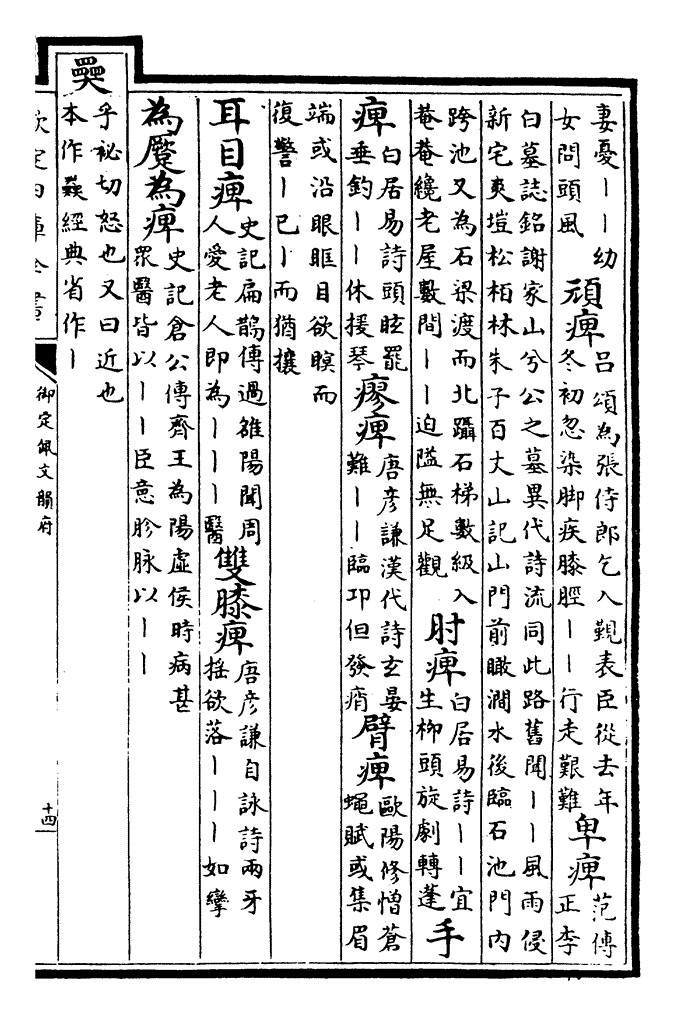 妻憂｜｜幼
女問頭風
頑痺
呂頌為張侍郎乞入覲表臣從去年
冬初忽染脚疾膝脛｜｜行走艱難
卑痺
范傳
正李
白墓誌銘謝家山兮公之墓異代詩流同此路舊聞｜｜風雨侵
新宅爽塏松柏林朱子百丈山記山門前瞰澗水後臨石池門内
跨池又為石梁渡而北躡石梯數級入
菴菴纔老屋數間｜｜迫隘無足觀
肘痺
白居易詩｜｜宜
生柳頭旋劇轉蓬
手
痺
白居易詩頭眩罷
垂釣｜｜休援琴
瘳痺
唐彦謙漢代詩玄晏
難｜｜臨邛但發痟
臂痺
歐陽修憎蒼
蠅賦或集眉
端或沿眼眶目欲瞑而
復警｜已｜而猶攘
耳目痺
史記扁鵲傳過雒陽聞周
人愛老人即為｜｜｜醫
雙膝痺
唐彦謙自詠詩兩牙
摇欲落｜｜｜如攣
為蹷為痺
史記倉公傳齊王為陽虛侯時病甚
衆醫皆以｜｜臣意胗脉以｜｜
奰
乎祕切怒也又曰近也
本作㚅經典省作｜
欽定四庫全書
御定佩文韻府
十四